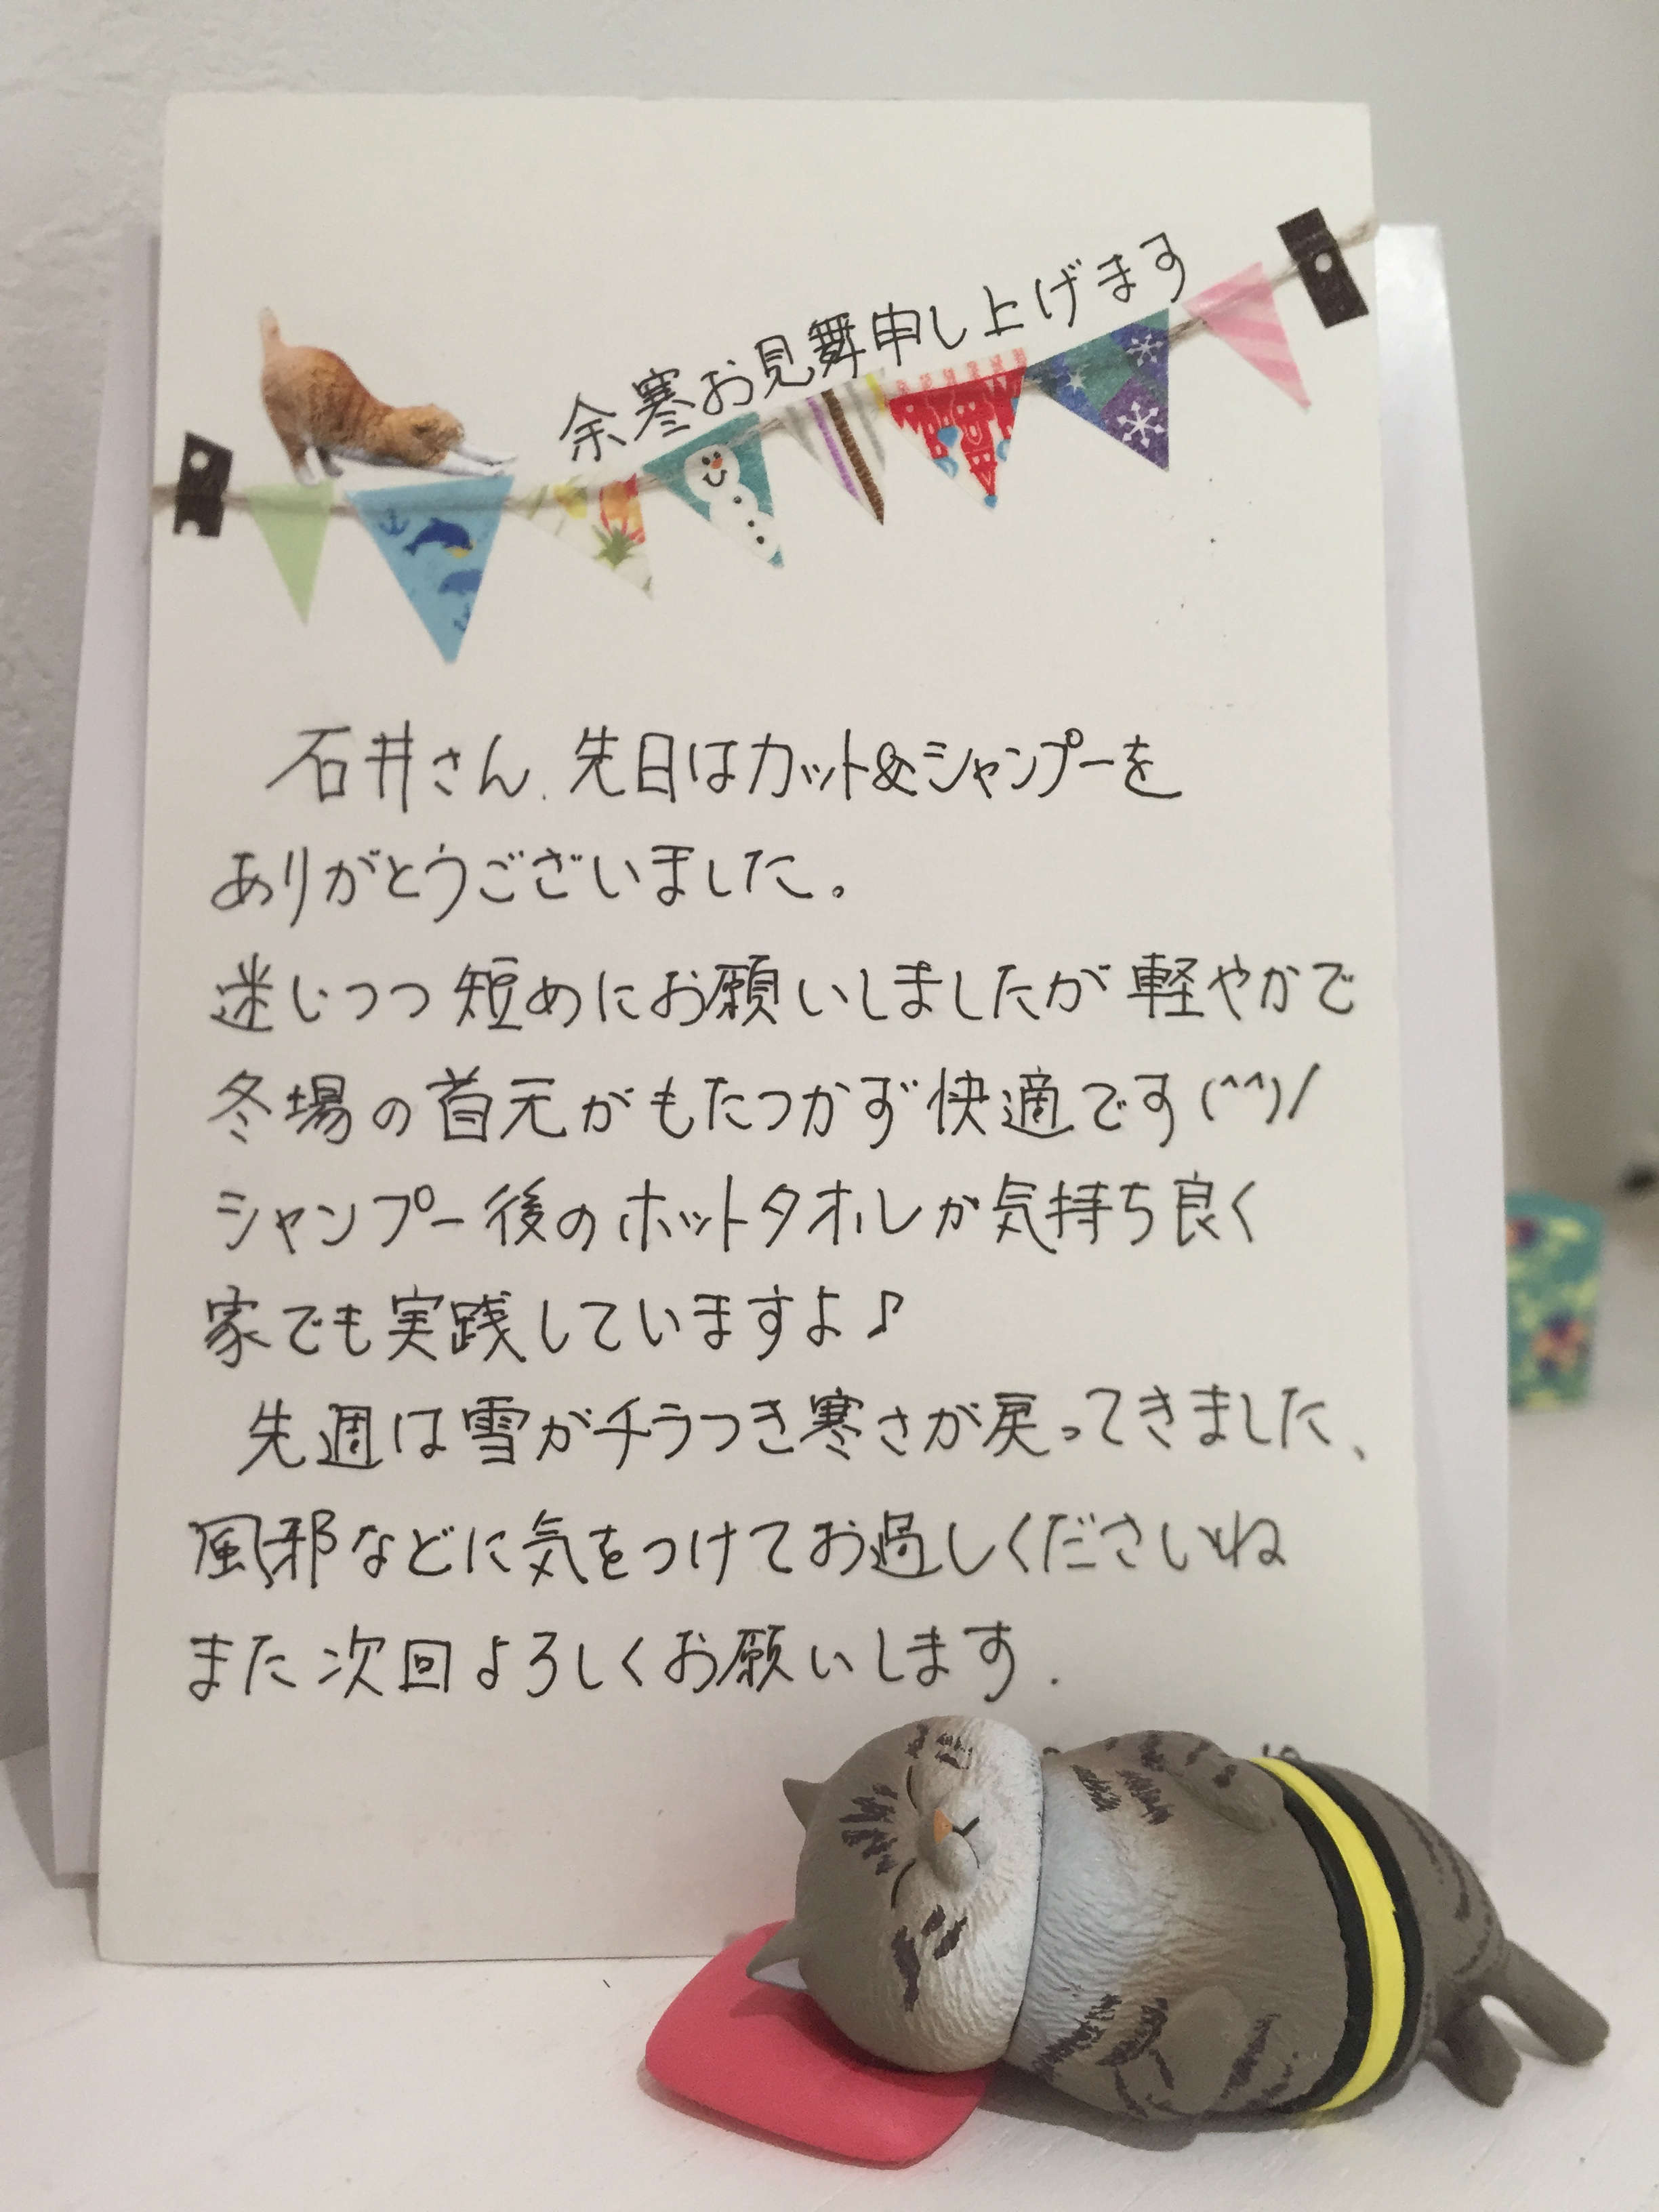 余寒お見舞申し上げます
石井さん、先日はカット&シャンプーを
ありがとうございました。
迷いつつ短めにお願いしましたが軽やかで
冬場の首元がもたつかず快適です(^^)/
シャンプー後のホットタオルが気持ち良く
家でも実践していますよ♪
先週は雪がチラつき寒さが戻ってきました、
風邪などに気をつけてお過しくださいね
また次回よろしくお願いします.